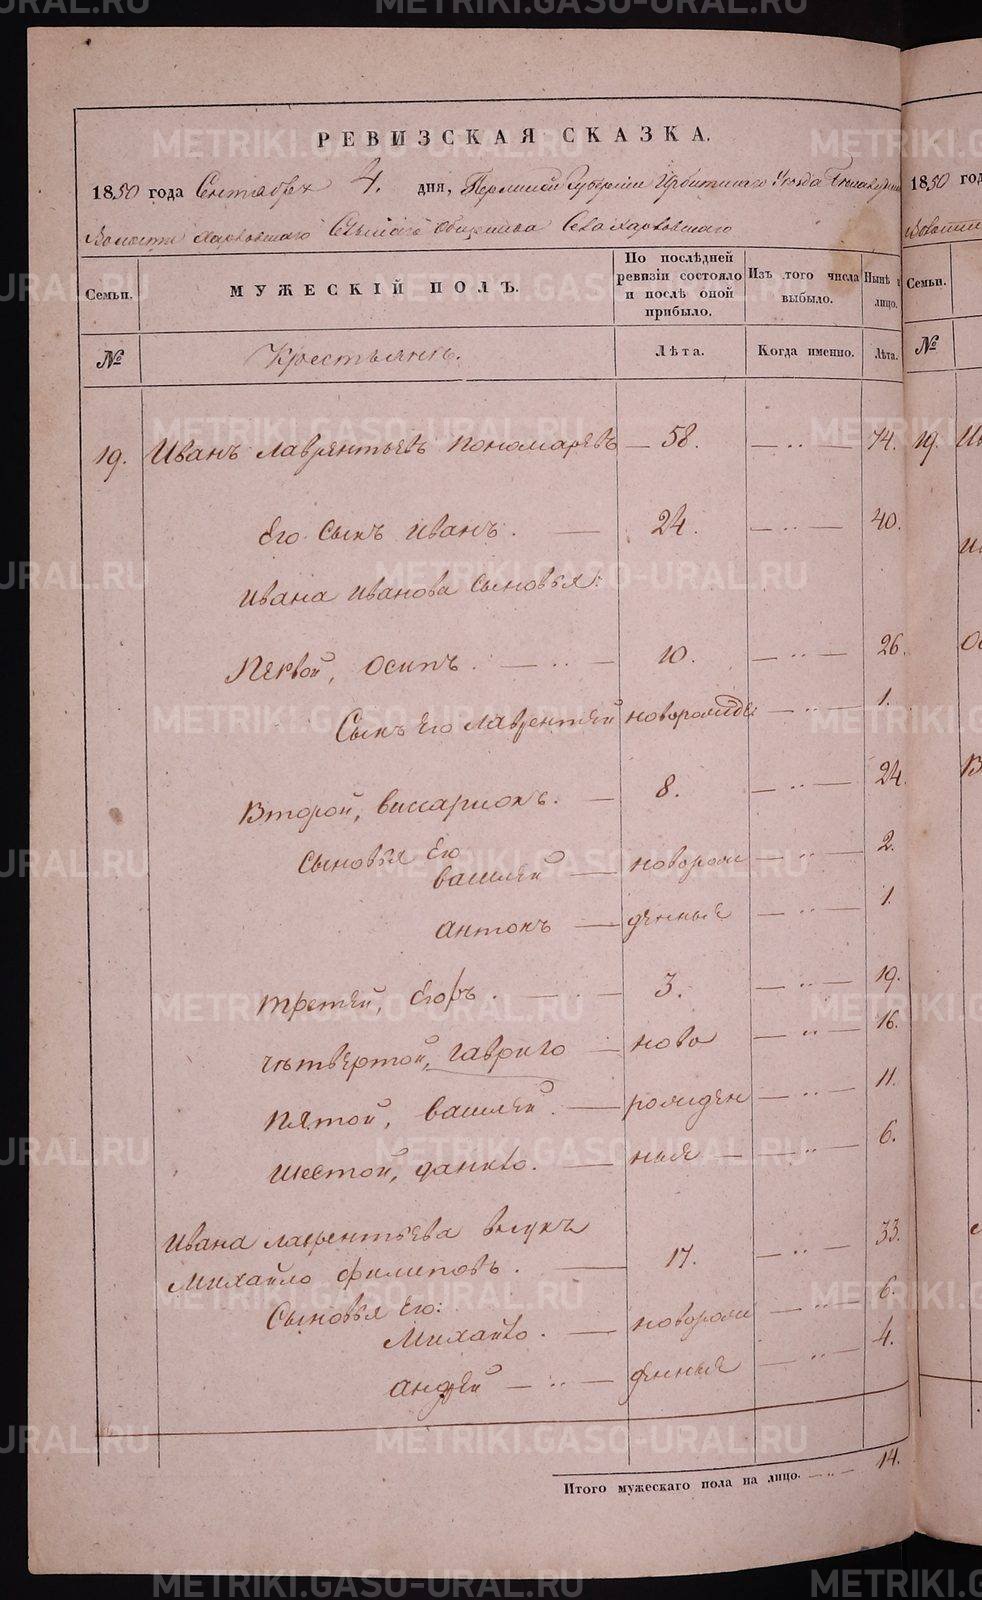 METRIKI.GASO-URAL.RU
РЕВИЗСКАЯ СКАЗКА.
1850 года Сентября 4. дня, Пермской Губернии Ирбитскаго Уезда
Волости Харловскаго Сельскаго общества Села Харловскаго
Семьи.
МУЖЕСКІЙ ПОЛЪ.
По послѣдней ревизіи состояло и послѣ оной прибыло.
Изъ того числа выбыло.
Нынѣ на лицо.
№
Крестьянъ.
Лѣта.
Когда именно.
Лѣта.
19. Иванъ Лаврентьевъ Пономаревъ — 58. — .. — 74.
Его сынъ Иванъ. — 24. — .. — 40.
Ивана Иванова сыновья:
Первой, Осипъ. — .. — 10. — .. — 26.
Сынъ Его Лаврентей новорожде — .. — 1.
Второй, Виссарионъ. — 8. — .. — 24.
Сыновья Его
Василей — новорож — .. — 2.
Антонъ — денные — .. — 1.
Третей, Егоръ. — .. — 3. — .. — 19.
Четвертой, Гаврило — ново — .. — 16.
Пятой, Василей. — рожден — .. — 11.
Шестой, Данило. — ные — .. — 6.
Ивана Лаврентьева внукъ
Михайло Филиповъ. — 17. — .. — 33.
Сыновья Его:
Михайло. — новорож — .. — 6.
Андрей — .. — денные — .. — 4.
Итого мужескаго пола на лицо. — .. — 14.
1850 год
Волости
Семьи.
№
19.